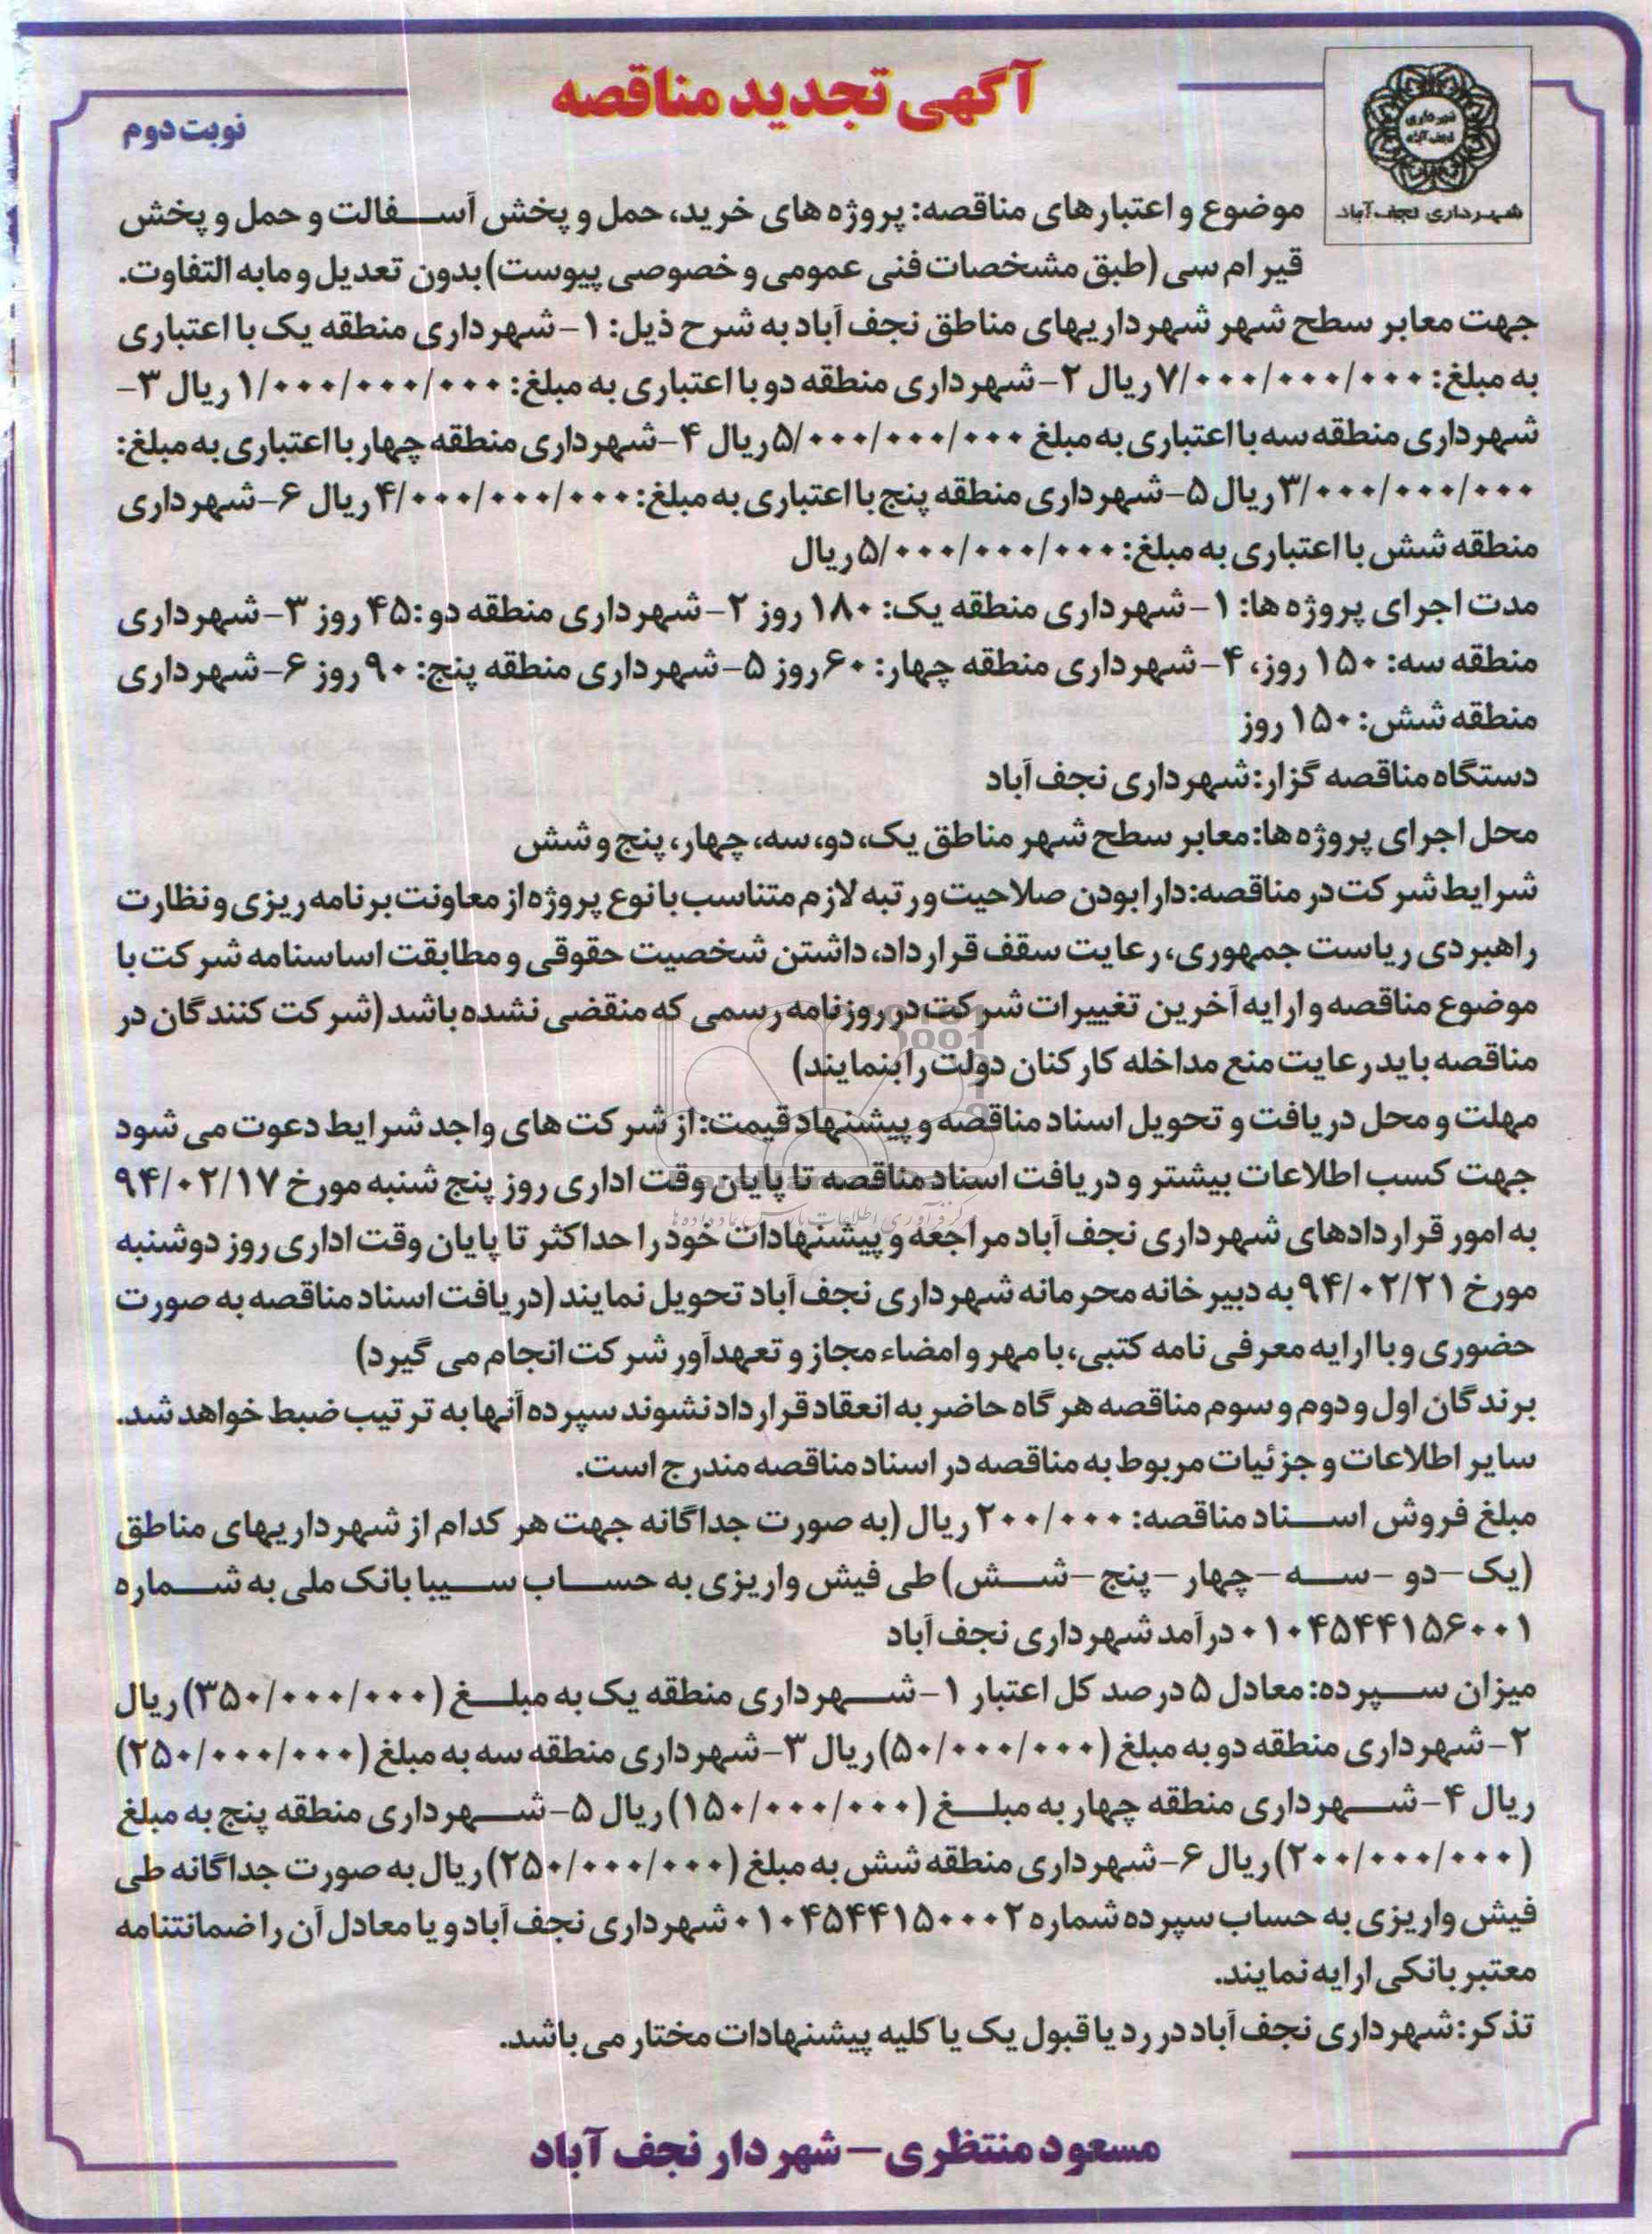 آگهی تجدید مناقصه
نوبت دوم
شهرداری نجف آباد
شهرداری نجف آباد
موضوع و اعتبارهای مناقصه: پروژه های خرید، حمل و پخش آسفالت و حمل و پخش
قیر ام سی (طبق مشخصات فنی عمومی و خصوصی پیوست) بدون تعدیل و مابه التفاوت.
جهت معابر سطح شهر شهرداریهای مناطق نجف آباد به شرح ذیل: ۱- شهرداری منطقه یک با اعتباری
به مبلغ: ۷/۰۰۰/۰۰۰/۰۰۰ ریال ۲- شهرداری منطقه دو با اعتباری به مبلغ: ۱/۰۰۰/۰۰۰/۰۰۰ ریال ۳-
شهرداری منطقه سه با اعتباری به مبلغ ۵/۰۰۰/۰۰۰/۰۰۰ ریال ۴- شهرداری منطقه چهار با اعتباری به مبلغ:
۳/۰۰۰/۰۰۰/۰۰۰ ریال ۵- شهرداری منطقه پنج با اعتباری به مبلغ: ۴/۰۰۰/۰۰۰/۰۰۰ ریال ۶- شهرداری
منطقه شش با اعتباری به مبلغ: ۵/۰۰۰/۰۰۰/۰۰۰ ریال
مدت اجرای پروژه ها: ۱- شهرداری منطقه یک: ۱۸۰ روز ۲- شهرداری منطقه دو: ۴۵ روز ۳- شهرداری
منطقه سه: ۱۵۰ روز، ۴- شهرداری منطقه چهار: ۶۰ روز ۵- شهرداری منطقه پنج: ۹۰ روز ۶- شهرداری
منطقه شش: ۱۵۰ روز
دستگاه مناقصه گزار: شهرداری نجف آباد
محل اجرای پروژه ها: معابر سطح شهر مناطق یک، دو، سه، چهار، پنج و شش
شرایط شرکت در مناقصه: دارا بودن صلاحیت و رتبه لازم متناسب با نوع پروژه از معاونت برنامه ریزی و نظارت
راهبردی ریاست جمهوری، رعایت سقف قرارداد، داشتن شخصیت حقوقی و مطابقت اساسنامه شرکت با
موضوع مناقصه و ارایه آخرین تغییرات شرکت در روزنامه رسمی که منقضی نشده باشد (شرکت کنندگان در
مناقصه باید رعایت منع مداخله کارکنان دولت را بنمایند)
مهلت و محل دریافت و تحویل اسناد مناقصه و پیشنهاد قیمت: از شرکت های واجد شرایط دعوت می شود
جهت کسب اطلاعات بیشتر و دریافت اسناد مناقصه تا پایان وقت اداری روز پنج شنبه مورخ ۹۴/۰۲/۱۷
به امور قراردادهای شهرداری نجف آباد مراجعه و پیشنهادات خود را حداکثر تا پایان وقت اداری روز دوشنبه
مورخ ۹۴/۰۲/۲۱ به دبیرخانه محرمانه شهرداری نجف آباد تحویل نمایند (دریافت اسناد مناقصه به صورت
حضوری و با ارایه معرفی نامه کتبی، با مهر و امضاء مجاز و تعهدآور شرکت انجام می گیرد)
برندگان اول و دوم و سوم مناقصه هرگاه حاضر به انعقاد قرارداد نشوند سپرده آنها به ترتیب ضبط خواهد شد.
سایر اطلاعات و جزئیات مربوط به مناقصه در اسناد مناقصه مندرج است.
مبلغ فروش اسناد مناقصه: ۲۰۰/۰۰۰ ریال (به صورت جداگانه جهت هر کدام از شهرداریهای مناطق
(یک - دو - سه - چهار - پنج - شش) طی فیش واریزی به حساب سیبا بانک ملی به شماره
۰۱۰۴۵۴۴۱۵۶۰۰۱ درآمد شهرداری نجف آباد
میزان سپرده: معادل ۵ درصد کل اعتبار ۱- شهرداری منطقه یک به مبلغ (۳۵۰/۰۰۰/۰۰۰) ریال
۲- شهرداری منطقه دو به مبلغ (۵۰/۰۰۰/۰۰۰) ریال ۳- شهرداری منطقه سه به مبلغ (۲۵۰/۰۰۰/۰۰۰)
ریال ۴- شهرداری منطقه چهار به مبلغ (۱۵۰/۰۰۰/۰۰۰) ریال ۵- شهرداری منطقه پنج به مبلغ
(۲۰۰/۰۰۰/۰۰۰) ریال ۶- شهرداری منطقه شش به مبلغ (۲۵۰/۰۰۰/۰۰۰) ریال به صورت جداگانه طی
فیش واریزی به حساب سپرده شماره ۰۱۰۴۵۴۴۱۵۰۰۰۲ شهرداری نجف آباد و یا معادل آن را ضمانتنامه
معتبر بانکی ارایه نمایند.
تذکر: شهرداری نجف آباد در رد یا قبول یک یا کلیه پیشنهادات مختار می باشد.
مسعود منتظری - شهردار نجف آباد